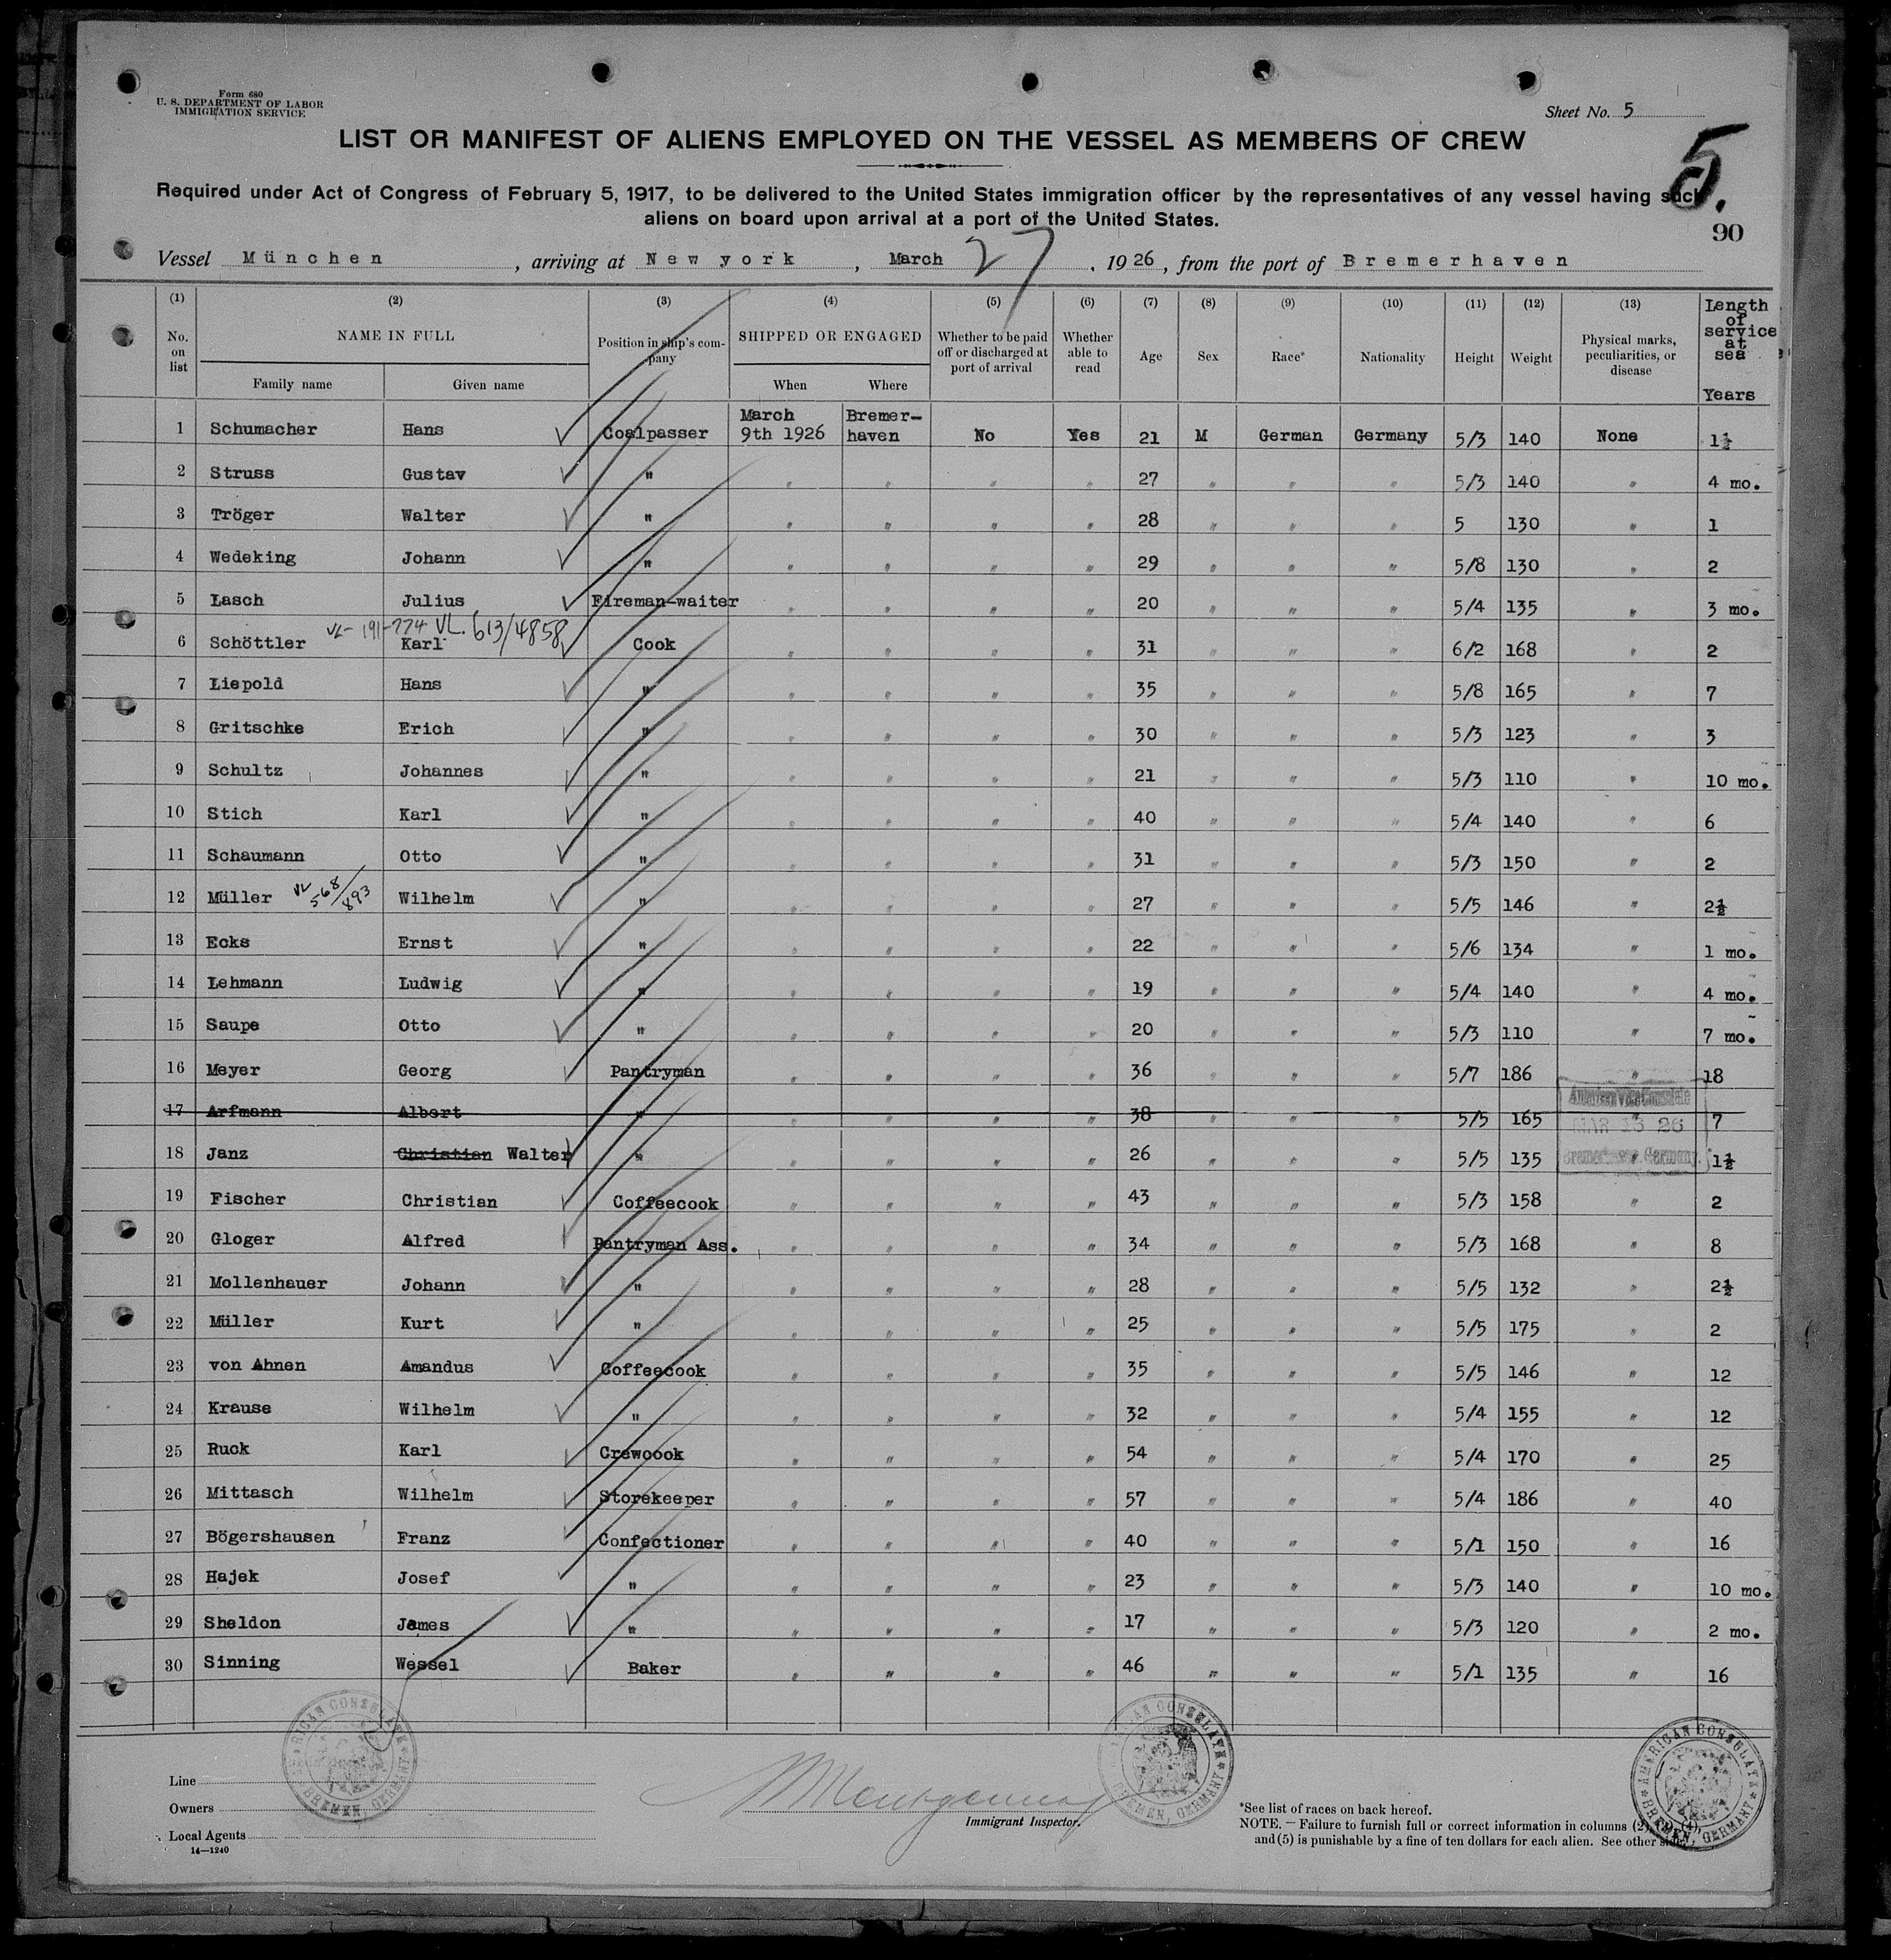 Form 680
U. S. DEPARTMENT OF LABOR
IMMIGRATION SERVICE
Sheet No. 5
LIST OR MANIFEST OF ALIENS EMPLOYED ON THE VESSEL AS MEMBERS OF CREW
5.
Required under Act of Congress of February 5, 1917, to be delivered to the United States immigration officer by the representatives of any vessel having such
aliens on board upon arrival at a port of the United States.
90
Vessel München, arriving at New york, March 27, 1926, from the port of Bremerhaven
(1) (2) (3) (4) (5) (6) (7) (8) (9) (10) (11) (12) (13) Length of service at sea Years
No. on list NAME IN FULL Position in ship's company SHIPPED OR ENGAGED Whether to be paid off or discharged at port of arrival Whether able to read Age Sex Race* Nationality Height Weight Physical marks, peculiarities, or disease
Family name Given name When Where
1 Schumacher Hans Coalpasser March 9th 1926 Bremer-haven No Yes 21 M German Germany 5/3 140 None 1½
2 Struss Gustav " " " " " 27 " " " 5/3 140 " 4 mo.
3 Tröger Walter " " " " " 28 " " " 5 130 " 1
4 Wedeking Johann " " " " " 29 " " " 5/8 130 " 2
5 Lasch Julius Fireman-waiter " " " " 20 " " " 5/4 135 " 3 mo.
VL- 191-774 VL. 613/4858
6 Schöttler Karl Cook " " " " 31 " " " 6/2 168 " 2
7 Liepold Hans " " " " " 35 " " " 5/8 165 " 7
8 Gritschke Erich " " " " " 30 " " " 5/3 123 " 3
9 Schultz Johannes " " " " " 21 " " " 5/3 110 " 10 mo.
10 Stich Karl " " " " " 40 " " " 5/4 140 " 6
11 Schaumann Otto " " " " " 31 " " " 5/3 150 " 2
12 Müller VL 568/893 Wilhelm " " " " " 27 " " " 5/5 146 " 2½
13 Ecks Ernst " " " " " 22 " " " 5/6 134 " 1 mo.
14 Lehmann Ludwig " " " " " 19 " " " 5/4 140 " 4 mo.
15 Saupe Otto " " " " " 20 " " " 5/3 110 " 7 mo.
16 Meyer Georg Pantryman " " " " 36 " " " 5/7 186 " 18
17 Arfmann Albert " " " " " 38 " " " 5/5 165 " 7
American Vice Consulate
MAR 13 26
Bremerhaven, Germany.
18 Janz Christian Walter " " " " " 26 " " " 5/5 135 " 1½
19 Fischer Christian Coffeecook " " " " 43 " " " 5/3 158 " 2
20 Gloger Alfred Pantryman Ass. " " " " 34 " " " 5/3 168 " 8
21 Mollenhauer Johann " " " " " 28 " " " 5/5 132 " 2½
22 Müller Kurt " " " " " 25 " " " 5/5 175 " 2
23 von Ahnen Amandus Coffeecook " " " " 35 " " " 5/5 146 " 12
24 Krause Wilhelm " " " " " 32 " " " 5/4 155 " 12
25 Ruck Karl Crewcook " " " " 54 " " " 5/4 170 " 25
26 Mittasch Wilhelm Storekeeper " " " " 57 " " " 5/4 186 " 40
27 Bögershausen Franz Confectioner " " " " 40 " " " 5/1 150 " 16
28 Hajek Josef " " " " " 23 " " " 5/3 140 " 10 mo.
29 Sheldon James " " " " " 17 " " " 5/3 120 " 2 mo.
30 Sinning Wessel Baker " " " " 46 " " " 5/1 135 " 16
AMERICAN CONSULATE BREMEN, GERMANY
AMERICAN CONSULATE BREMEN, GERMANY
AMERICAN CONSULATE BREMEN, GERMANY
Line
Owners
Local Agents
14—1240
Immigrant Inspector.
*See list of races on back hereof.
NOTE. — Failure to furnish full or correct information in columns (2), (3), (4),
and (5) is punishable by a fine of ten dollars for each alien. See other side.